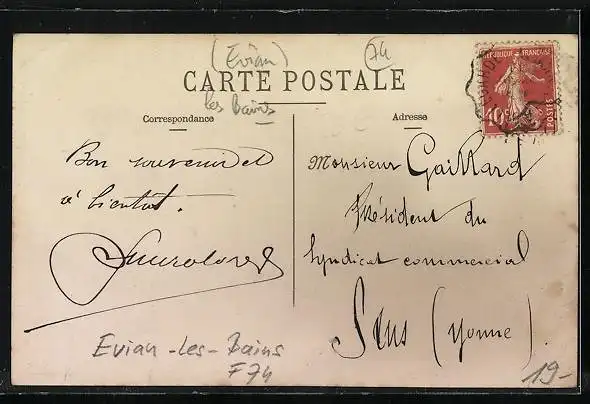 (Evian)
74
CARTE POSTALE
les Bains
Correspondance
Adresse
REPUBLIQUE FRANÇAISE
10
POSTES
Bon souvenir et
à bientôt.
Monsieur Gaillard
Président du
Syndicat commercial
Sens (Yonne)
Evian-les-Bains
F74
19-